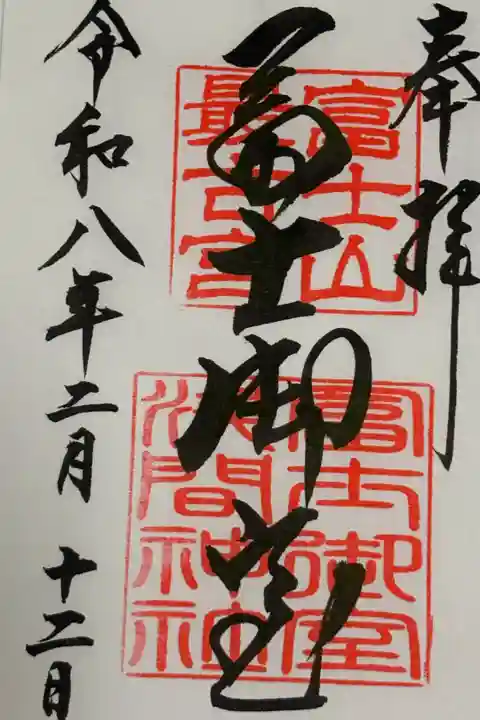 奉拝
冨士御室
富士山
最古宮
冨士御室
浅間神社
令和八年二月十二日